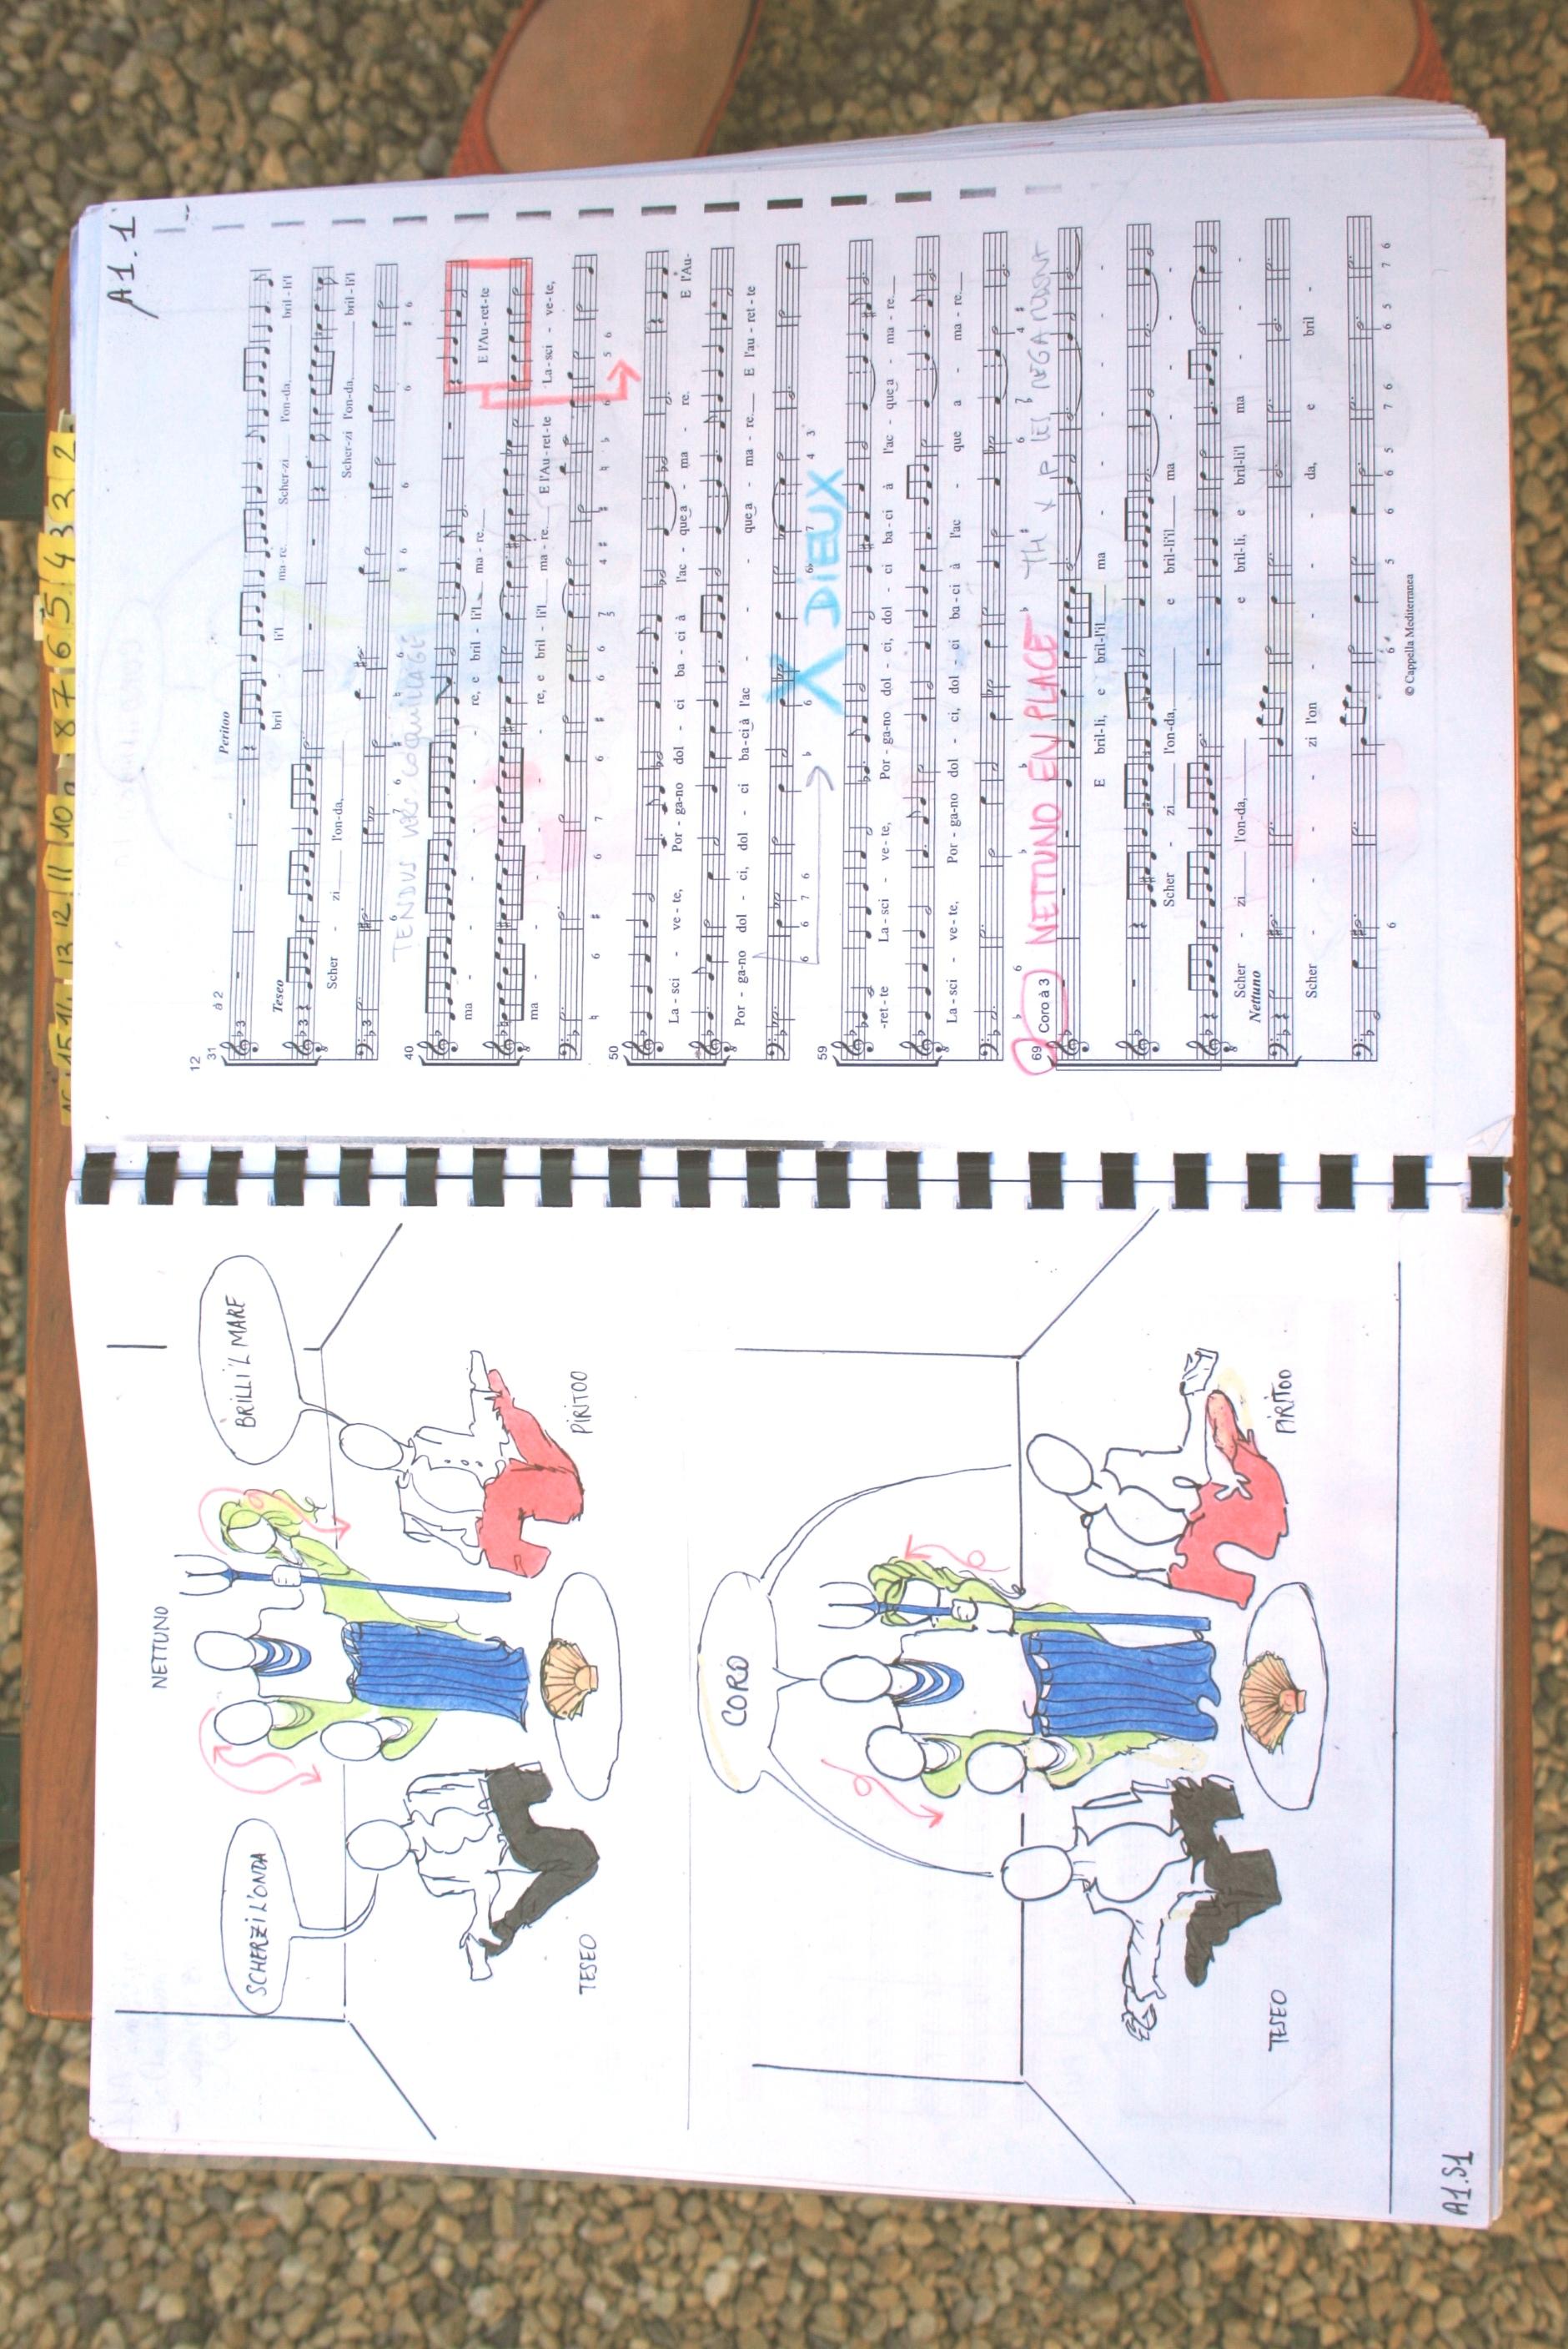 NETTUNO
SCHERZI L'ONDA
BRILLI'L MARE
TESEO
PIRITOO
CORO
TESEO
PIRITOO
A1.S1
A1.1
16 15 14 13 12 11 10 9 8 7 6 5 4 3 2
12
31
à 2
Peritoo
bril - li'l ma-re. Scher-zi l'on-da, bril-li'l
Teseo
Scher - zi l'on-da, Scher-zi l'on-da, bril-li'l
TENDUS VERS COQUILLAGE
40
ma - re, e bril - li'l ma - re. E l'Au-ret-te
ma - re, e bril - li'l ma - re. E l'Au-ret-te La-sci - ve-te,
50
La - sci - ve - te, Por - ga-no dol - ci ba - ci à l'ac - que a - ma - re. E l'Au-
Por - ga-no dol - ci, dol - ci ba-ci à l'ac - que a - ma - re. E l'au - ret - te
X DIEUX
59
-ret - te La - sci - ve - te, Por - ga-no dol - ci, dol - ci ba - ci à l'ac - que a - ma - re.
La - sci - ve - te, Por - ga-no dol - ci, dol - ci ba-ci à l'ac - que a - ma - re.
69
Coro à 3
NETTUNO EN PLACE
TH X P
E bril-li, e bril-l'il ma
Scher - zi l'on-da, e bril-li'il ma
Scher - zi l'on-da, e bril-li, e bril-li'l ma
Nettuno
Scher - zi l'on - da, e bril -
© Cappella Mediterranea